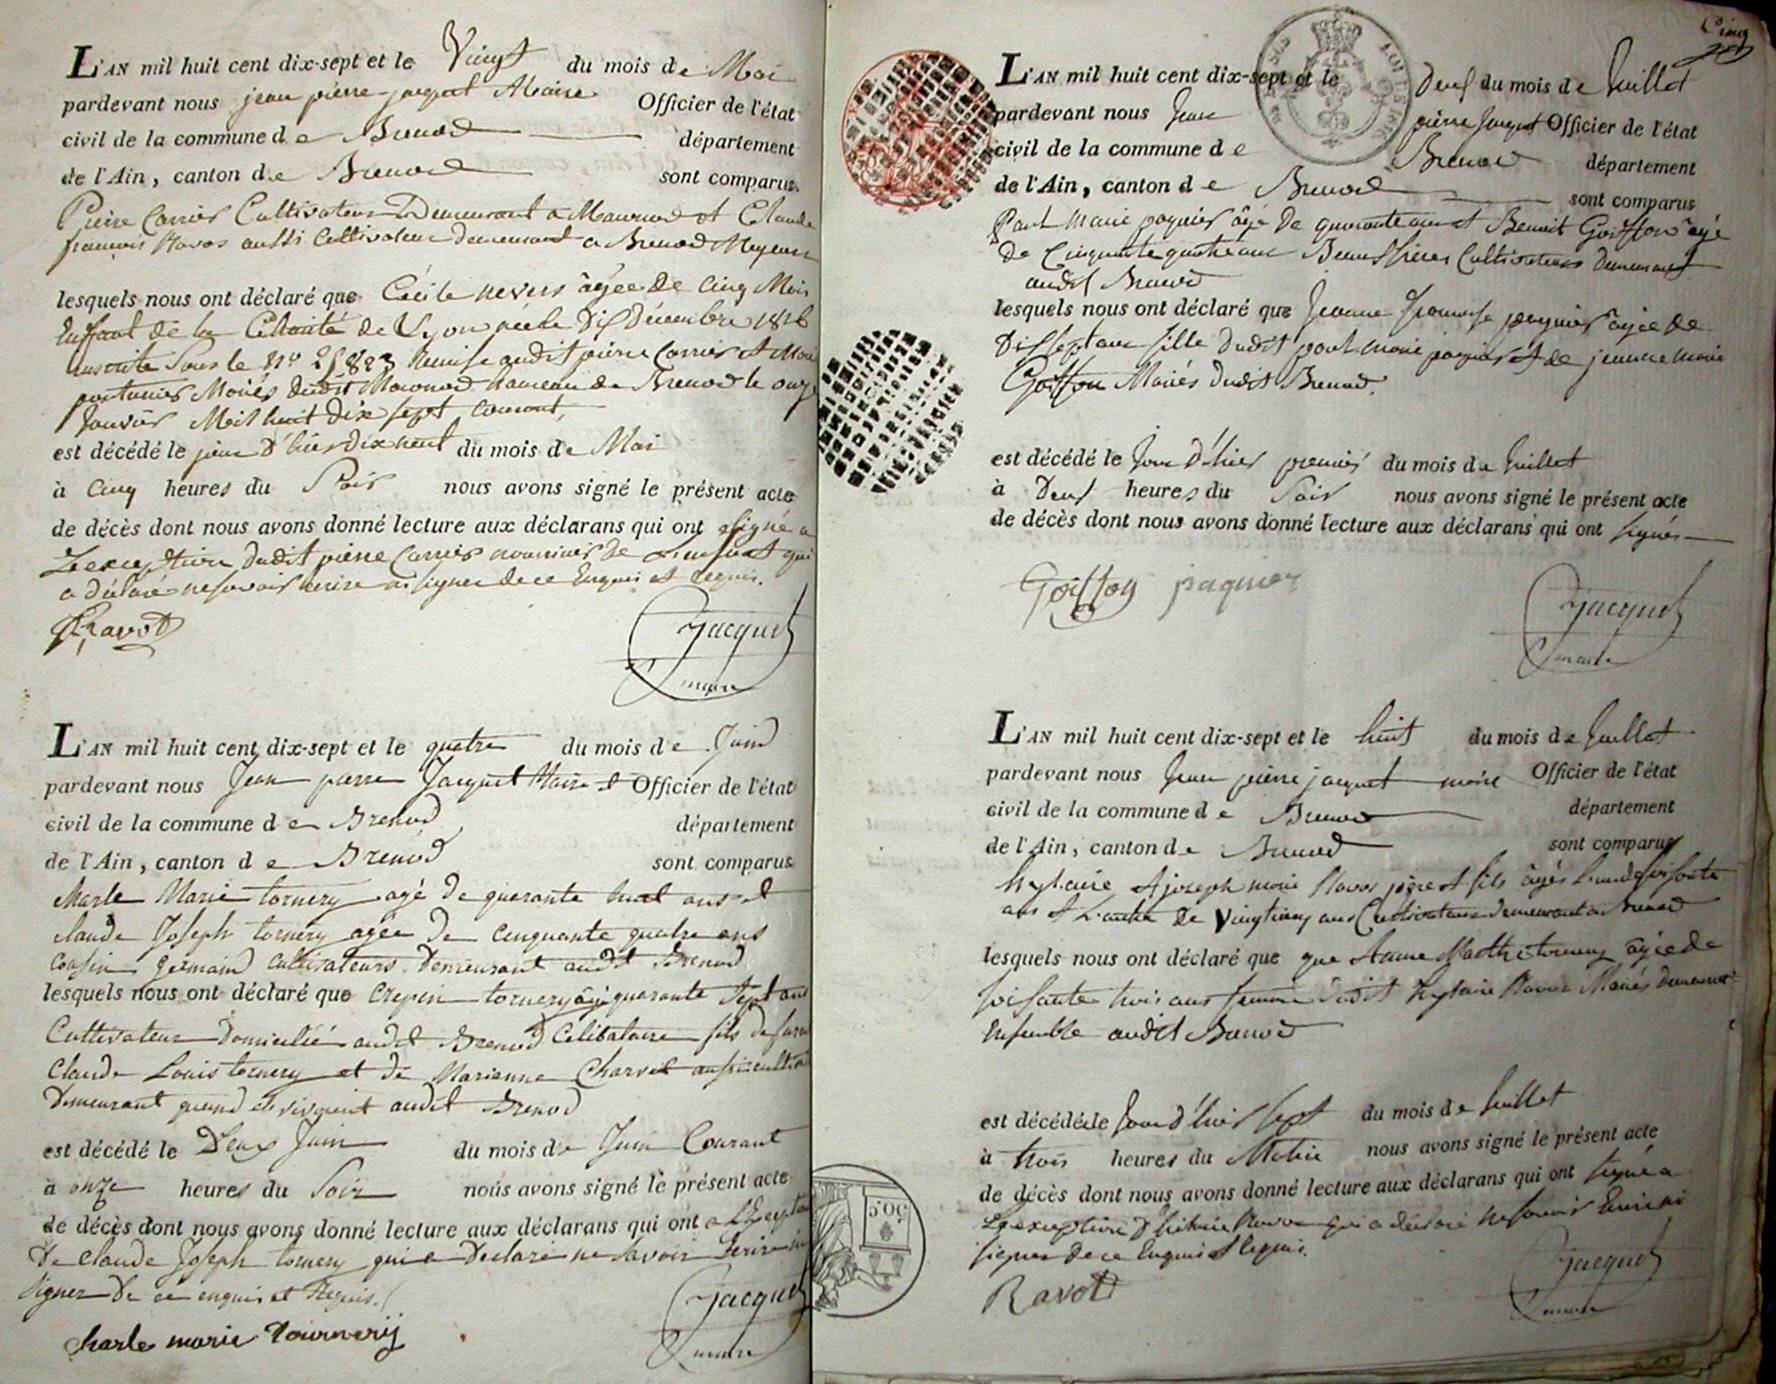 L'AN mil huit cent dix-sept et le Vingt du mois de Mai
pardevant nous jean pierre jacquet Maire Officier de l'état
civil de la commune de Brenod département
de l'Ain, canton de Brenod sont comparus
Pierre Carrier Cultivateur Demeurant a et Claude
françois Ravot aussi Cultivateur demeurant a Brenod Majeurs
lesquels nous ont déclaré que Cécile nevers âgée de Cinq Mois
Enfant de la Charité de Lyon née le Dix Décembre 1816
inscrite Sous le Nº Remise audit pierre Carrier et
Mariés dudit hameau de Brenod le onze
Janvier Mil huit Dix sept Courant,
est décédé le jour D'hier dix neuf du mois de Mai
à Cinq heures du Soir nous avons signé le présent acte
de décès dont nous avons donné lecture aux déclarans qui ont signé a
L'exception dudit pierre Carrier nourricier de L'enfant qui
a déclaré ne savoir écrire ni signer de ce Enquis et requis.
Ravot
Jacquet
maire
L'AN mil huit cent dix-sept et le quatre du mois de Juin
pardevant nous Jean pierre Jacquet Maire et Officier de l'état
civil de la commune de Brenod département
de l'Ain, canton de Brenod sont comparus
Charle Marie tornery agé de quarante huit ans et
claude Joseph tornery agée de cinquante quatre ans
cousin germain cultivateurs Demeurant audit Brenod
lesquels nous ont déclaré que Crepin tornery âgé quarante sept ans
Cultivateur Domicilié audit Brenod Célibataire fils de
Claude Louis tornery et de Marianne Charvet aussi
Demeurant quand ils vivoient audit Brenod
est décédé le Deux Juin du mois de Juin Courant
à onze heures du Soir nous avons signé le présent acte
de décès dont nous avons donné lecture aux déclarans qui ont a L'Exception
De claude Joseph tornery qui a Declaré ne Savoir Ecrire ni
Signer De ce enquis et Requis.
charle marie tournery
Jacquet
maire
Cinq
L'AN mil huit cent dix-sept et le deux du mois de Juillet
pardevant nous Jean pierre Jacquet Officier de l'état
civil de la commune de Brenod département
de l'Ain, canton de Brenod sont comparus
Paul Marie paquier âgé de quarante ans et Benoit Goiffon âgé
de Cinquante quatre ans Beaux frères Cultivateurs demeurant
audit Brenod
lesquels nous ont déclaré que Jeanne françoise paquier âgée de
Dix Sept ans fille dudit paul marie paquier et de jeanne marie
Goiffon Mariés dudit Brenod.
est décédé le Jour d'hier premier du mois de Juillet
à Deux heures du Soir nous avons signé le présent acte
de décès dont nous avons donné lecture aux déclarans qui ont signés
Goiffon paquier
Jacquet
maire
L'AN mil huit cent dix-sept et le huit du mois de Juillet
pardevant nous Jean pierre jacquet maire Officier de l'état
civil de la commune de Brenod département
de l'Ain, canton de Brenod sont comparus
hylaire et joseph marie Ravot père et fils âgés L'un de soixante
ans et L'autre de Vingt cinq ans Cultivateurs demeurant a Brenod
lesquels nous ont déclaré que que âgée de
soixante trois ans femme dudit hylaire Ravot Mariés demeurant
ensemble audit Brenod
est décédée le Jour d'hier sept du mois de Juillet
à trois heures du Matin nous avons signé le présent acte
de décès dont nous avons donné lecture aux déclarans qui ont signé a
L'exception d'hilaire Ravot qui a déclaré ne savoir Ecrire ni
signer de ce Enquis et Requis.
Ravot
Jacquet
maire